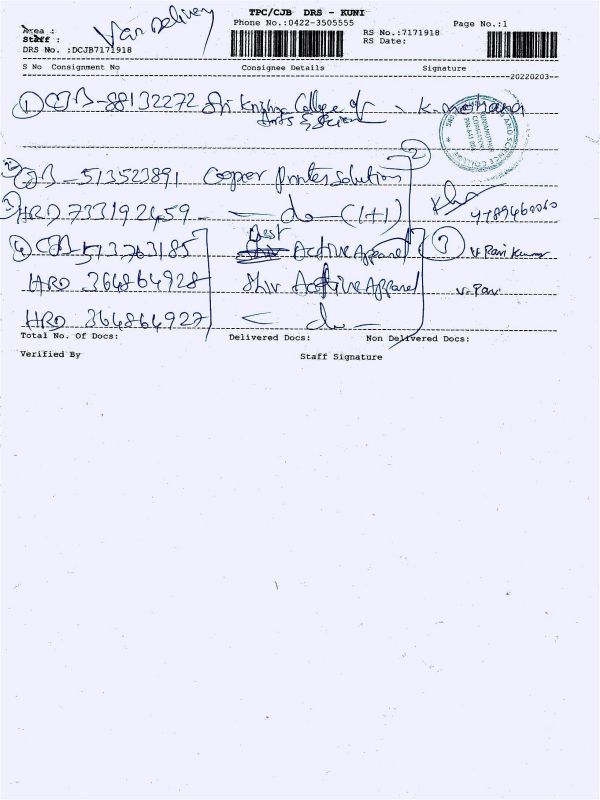 TPC/CJB DRS - KUNI
Van Delivery
Area :
Phone No.:0422-3505555
Page No.:1
Staff :
RS No.:7171918
DRS No. :DCJB7171918
RS Date:
S No Consignment No Consignee Details Signature
20220203
1 CJB-88132272 Sri Krishna College of
Arts & Science
2
CJB-513523891 Cooper Printer Solution
3 HRD 733192459 - do - (1+1)
Best
4 CJB-573763185 Active Apparel
V Ravi Kumar
HRD 364864928 Shiv Active Apparel
HRD 364864927 - do -
Total No. Of Docs: Delivered Docs: Non Delivered Docs:
Verified By Staff Signature